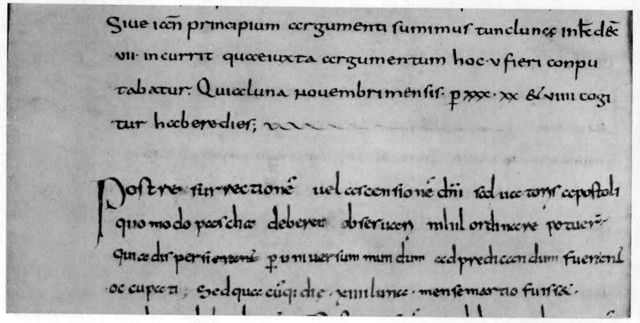 Siue ian principium argumenti sumimus tunc luna in kl dec
vii. incurrit quae iuxta argumentum hoc v fieri conpu
tabatur. Quia luna nouembri mensis. p xxx. xx & viiii cogi
tur habere dies;
Post resurrectionē uel ascensionē dni saluatoris apostoli
quomodo pascha deberet obseruari nihil ordinare potuer
Quia dispersi erant p uniuersum mundum ad predicandum fuerant
occupati; Sed quacūq; die. xiiii luna. mense martio fuisset.